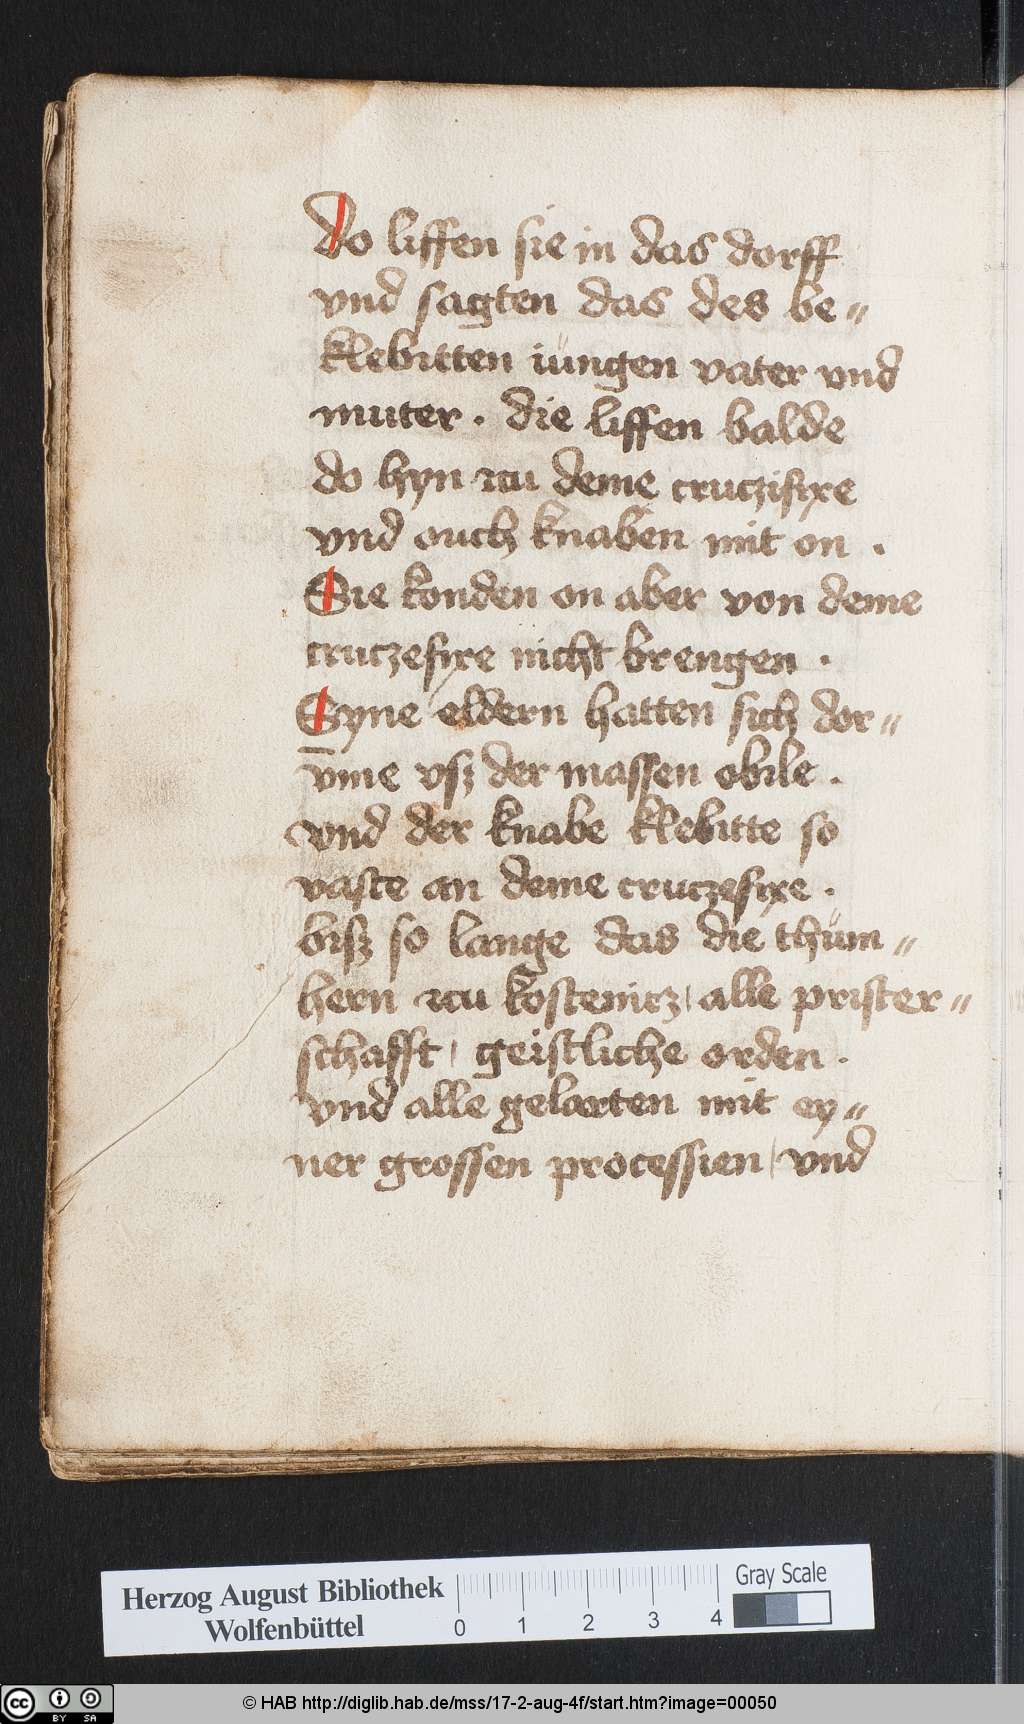 do liffen sie in das dorff
vnd sagten das des be〃
klebitten iüngen vater vnd
muter . die liffen balde
do hyn zcu deme cruczifixe
vnd ouch knaben mit on .
Sie konden on aber von deme
cruczefixe nicht brengen .
Syne eldern hatten sich dor〃
v̄me vsz der massen obile .
vnd der knabe klebitte so
vaste an deme cruczefixe .
bisz so lange das die thüm〃
hern zcu kostenicz / alle prister〃
schafft / geistliche orden .
vnd alle gelarten mit ey〃
ner grossen processien / vnd
Herzog August Bibliothek
Wolfenbüttel
0 1 2 3 4
Gray Scale
cc BY SA
© HAB http://diglib.hab.de/mss/17-2-aug-4f/start.htm?image=00050